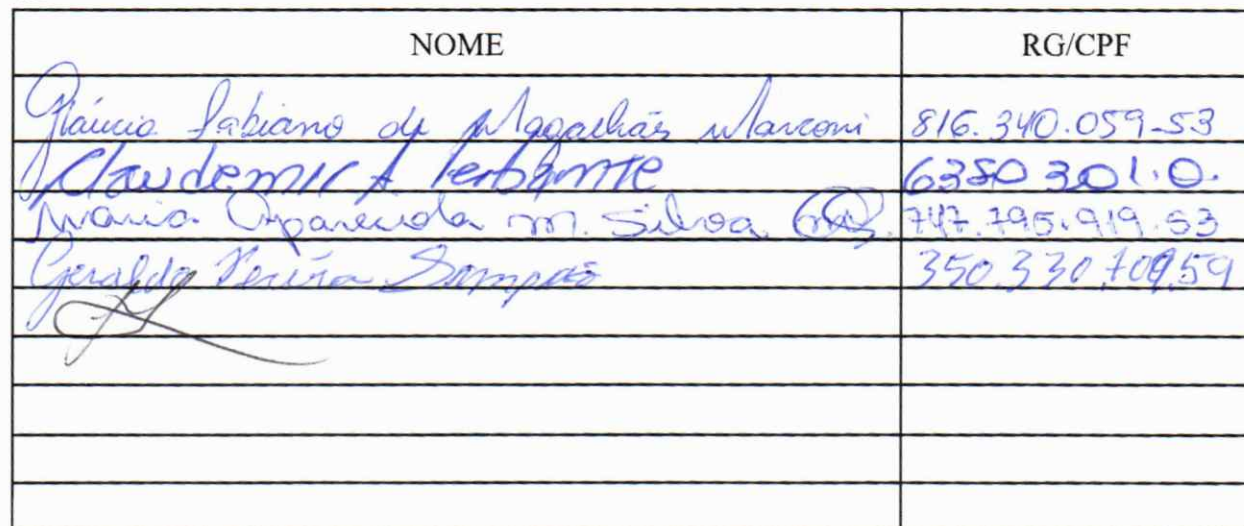 NOME RG/CPF
Gláucia Fabiano de Magalhães Marconi 816.340.059-53
Claudemir A 6350301.0.
Maria Aparecida m. Silva 747.795.919.53
Geraldo Pereira Sampaio 350.330.709,59